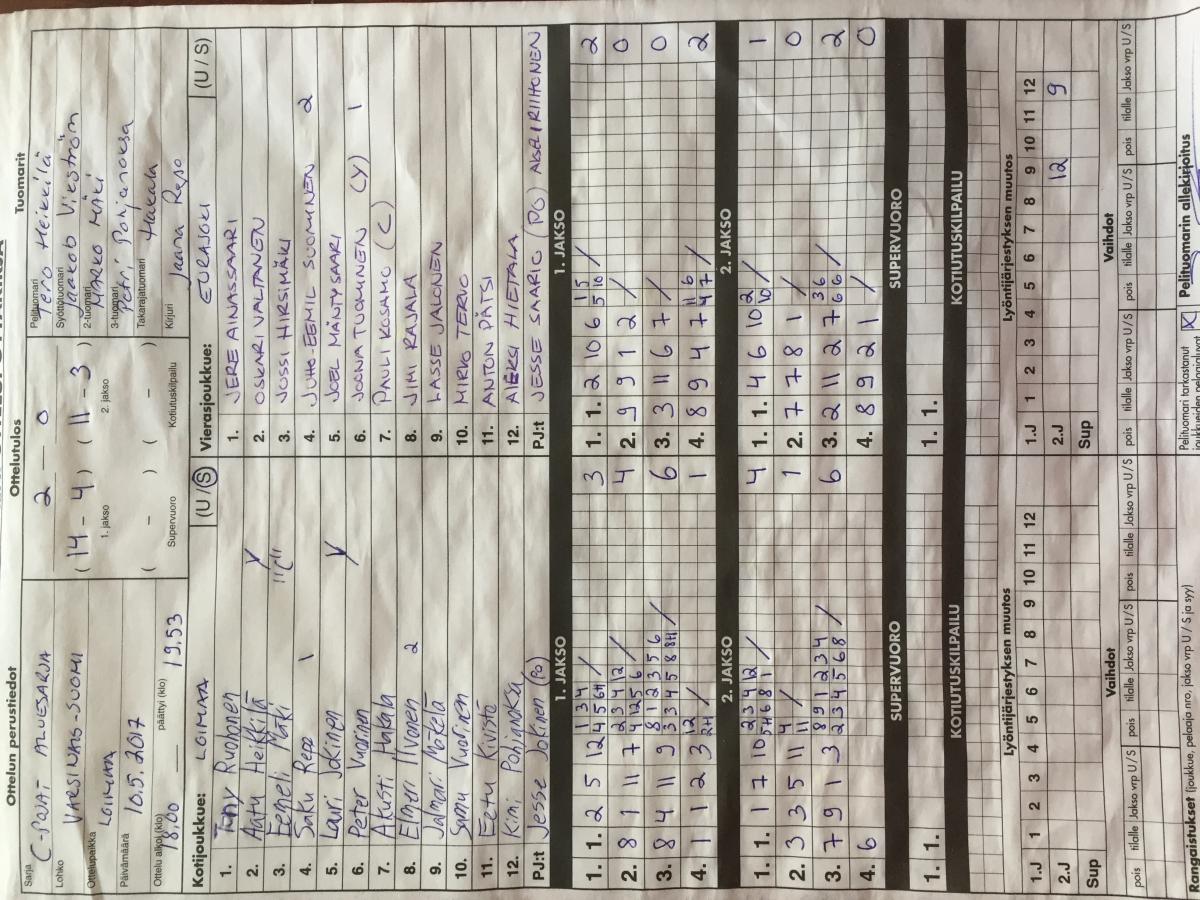 Ottelun perustiedot
Sarja C-POJAT ALUESARJA
Lohko VARSINAIS-SUOMI
Ottelupaikka LOIMAA
Päivämäärä 10.5.2017
Ottelu alkoi (klo) 18.00 päättyi (klo) 19.53
Ottelutulos
2 – 0
( 14 – 4 ) ( 11 – 3 )
1. jakso 2. jakso
( – ) ( – )
Supervuoro Kotiutuskilpailu
Tuomarit
Pelituomari Tero Heikkilä
Syöttötuomari Jaakob Vikström
2-tuomari Marko Mäki
3-tuomari Petri Pohjanoksa
Takarajatuomari Hakala
Kirjuri Jaana Repo
Kotijoukkue: LOIMAA (U / S)
1. Tony Ruohonen
2. Aatu Heikkilä Y
3. Eemeli Mäki "C"
4. Saku Repo 1
5. Lari Jokinen Y
6. Peter Vuorinen
7. Akusti Hakala
8. Elmeri Ilvonen 2
9. Jalmari Mäkelä
10. Samu Vuorinen
11. Eetu Kivistö
12. Kimi Pohjanoksa
PJ:t Jesse Jokinen (PO)
Vierasjoukkue: EURAJOKI (U / S)
1. JERE AINASSAARI
2. OSKARI VALTANEN
3. JOSSI HIRSIMÄKI
4. JUHO-EEMIL SUOMINEN 2
5. JOEL MÄNTYSAARI
6. JOONA TUOMINEN (Y) 1
7. PAULI KOSAMO (C)
8. JIMI RAJALA
9. LASSE JALONEN
10. MIRKO TERVO
11. ANTON PÄTSI
12. ALEKSI HIETALA
PJ:t JESSE SAARIO (PO) AKSA RIIHONEN
1. JAKSO
1. 1. 2 5 12 4 5 6 11 / 3
1 3 4
2. 8 1 11 7 4 12 5 6 / 4
2 3 4 12
3. 8 4 11 9 3 3 4 5 8 8 11 / 6
8 1 2 3 5 6
4. 1 1 2 3 2 11 / 1
12
1. JAKSO
1. 1. 2 10 6 5 10 / 2
1 5
2. 9 9 1 2 / 0
3. 3 11 6 7 / 0
4. 8 9 4 7 4 7 2
11 6
2. JAKSO
1. 1. 1 7 10 5 11 6 8 1 / 4
2 3 4 12
2. 3 3 5 11 11 / 1
4
3. 7 9 1 3 2 3 4 5 6 8 / 6
8 9 1 2 3 4
4. 6
2. JAKSO
1. 1. 4 6 10 10 / 1
2
2. 7 7 8 1 / 0
3. 2 11 2 7 6 6 / 2
3 6
4. 8 9 2 1 / 0
SUPERVUORO
1. 1.
SUPERVUORO
1. 1.
KOTIUTUSKILPAILU
KOTIUTUSKILPAILU
Lyöntijärjestyksen muutos
1.J 1 2 3 4 5 6 7 8 9 10 11 12
2.J
Sup
Lyöntijärjestyksen muutos
1.J 1 2 3 4 5 6 7 8 9 10 11 12
2.J 12 9
Sup
Vaihdot
pois tilalle Jakso vrp U / S pois tilalle Jakso vrp U / S pois tilalle Jakso vrp U / S
Vaihdot
pois tilalle Jakso vrp U / S pois tilalle Jakso vrp U / S pois tilalle Jakso vrp U / S
Rangaistukset (joukkue, pelaaja nro, jakso vrp U / S ja syy)
Pelituomari tarkastanut
joukkueiden pelaajaluvat
Pelituomarin allekirjoitus